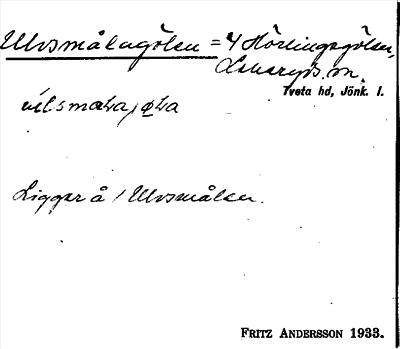 Ulvsmålagölen = Y Hörlingagölen,
Lekaryds sn.
Tveta hd, Jönk. l.
Ligger å / Ulvsmålen.
FRITZ ANDERSSON 1933.